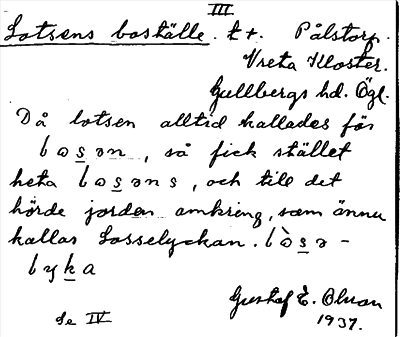 III
Lotsens boställe. t. t. Pålstorp.
Vreta Kloster.
Gullbergs hd. Ögl.
Då lotsen alltid kallades för
lɷsən, så fick stället
heta lɷsəns, och till det
hörde jorden omkring, som ännu
kallas Losselyckan. lɷ̀sə-
lyka
Gustaf E. Olsson
1937.
Se IV